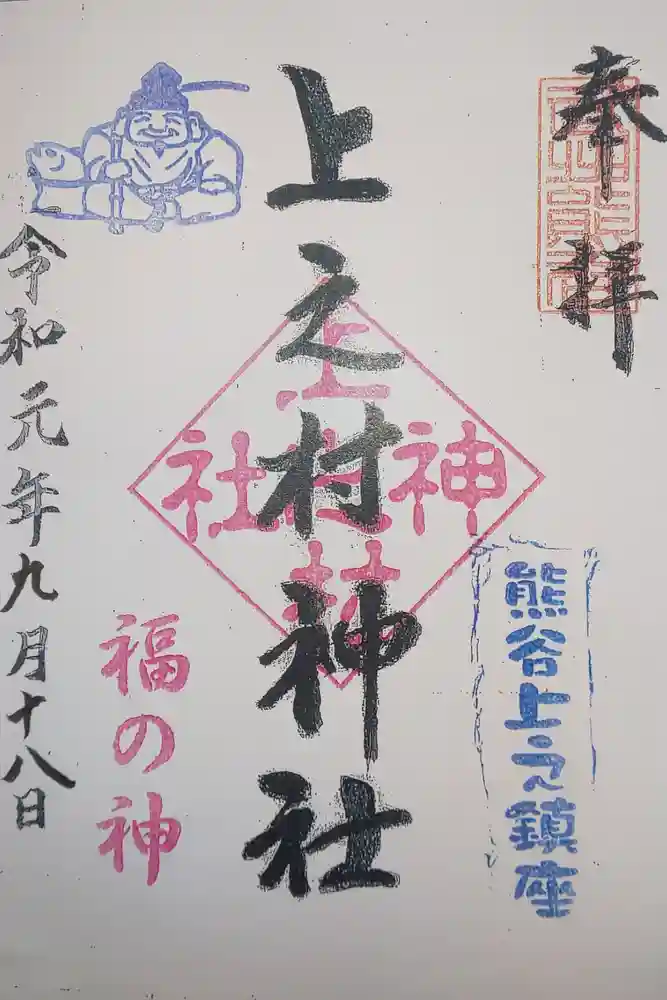 奉拝
熊谷上之鎮座
上之村神社
上之村神社
福の神
令和元年九月十八日